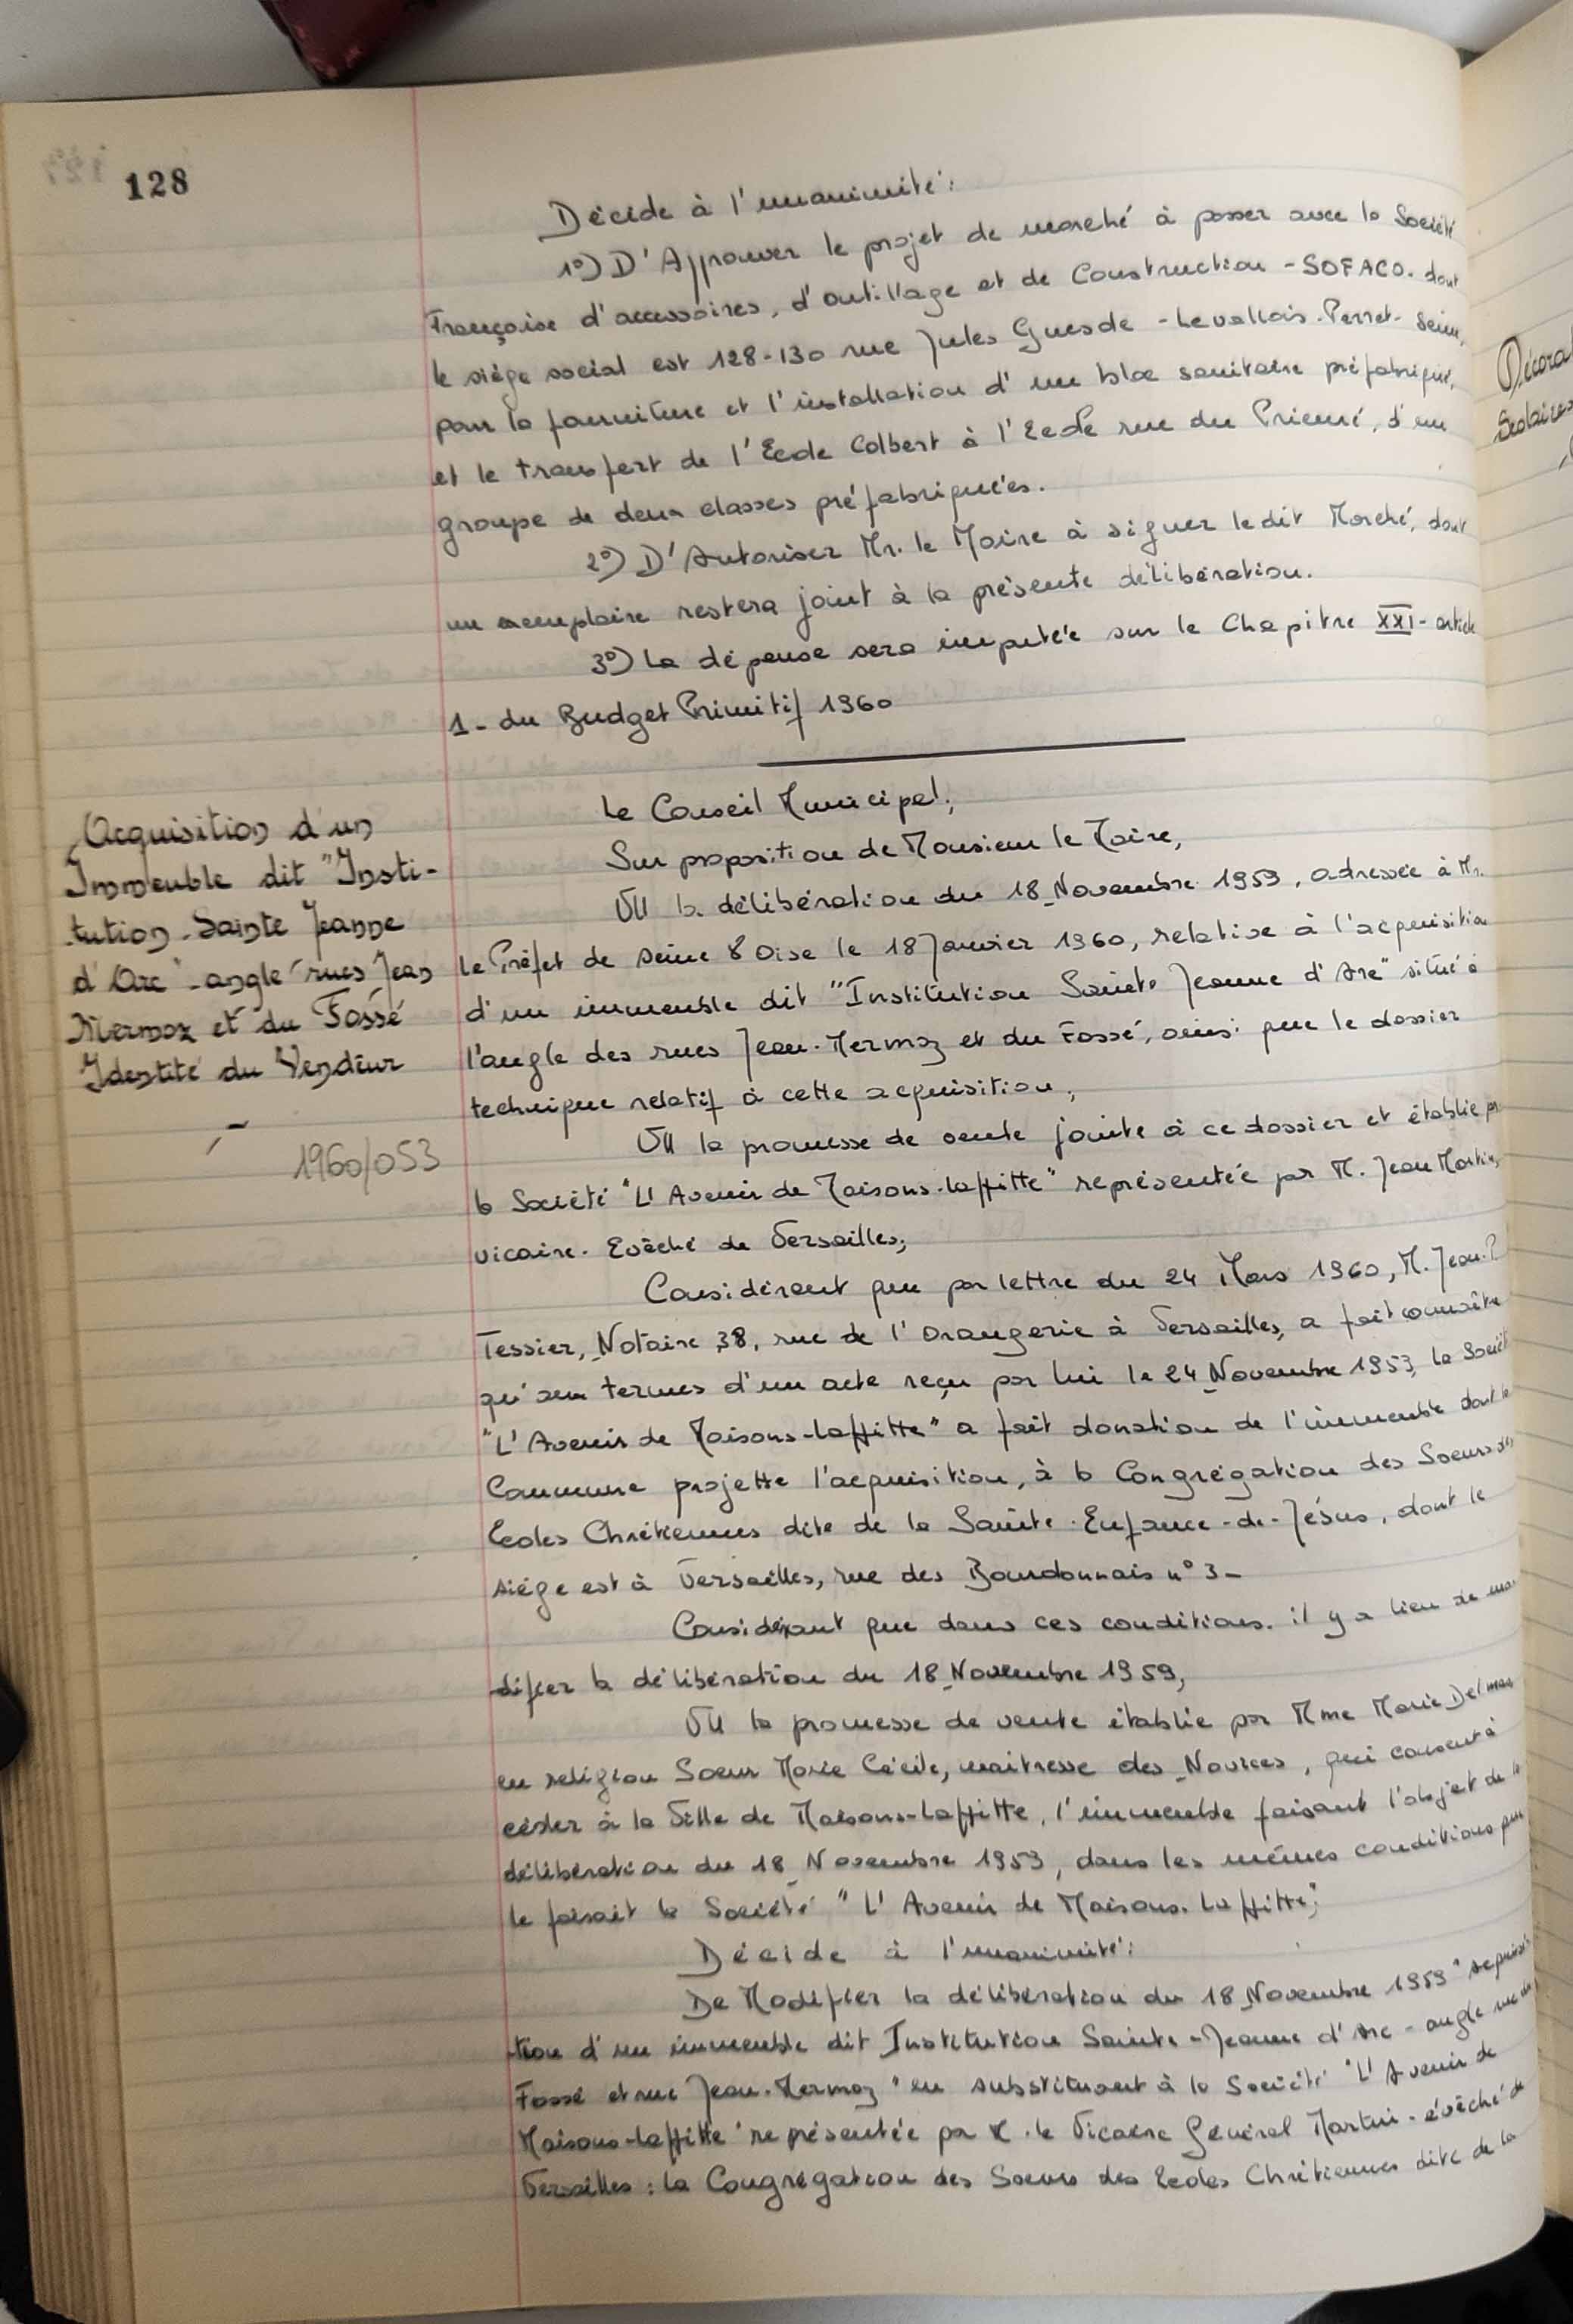 128
Décide à l'unanimité:
1°) D'Approuver le projet de marché à passer avec la Société
Française d'accessoires, d'outillage et de Construction - SOFACO. dont
le siège social est 128-130 rue Jules Guesde - Levallois-Perret- Seine,
pour la fourniture et l'installation d'un bloc sanitaire préfabriqué,
et le transfert de l'Ecole Colbert à l'Ecole rue du Prieuré, d'un
groupe de deux classes préfabriquées.
2°) D'Autoriser Mr. le Maire à signer ledit Marché, dont
un exemplaire restera joint à la présente délibération.
3°) La dépense sera imputée sur le Chapitre XXI - article
1 - du Budget Primitif 1960
Acquisition d'un
Immeuble dit "Insti-
tution Sainte Jeanne
d'Arc" - angle rues Jean
Mermoz et du Fossé
Identité du Vendeur
1960/053
Le Conseil Municipal,
Sur proposition de Monsieur le Maire,
VU la délibération du 18 Novembre 1959, adressée à Mr.
le Préfet de Seine & Oise le 18 Janvier 1960, relative à l'acquisition
d'un immeuble dit "Institution Sainte Jeanne d'Arc" situé à
l'angle des rues Jean-Mermoz et du Fossé, ainsi que le dossier
technique relatif à cette acquisition,
VU la promesse de vente jointe à ce dossier et établie par
la Société "L'Avenir de Maisons-Laffitte" représentée par M. Jean Martin,
vicaire. Evêché de Versailles;
Considérant que par lettre du 24 Mars 1960, M. Jean-P
Tessier, Notaire 38, rue de l'Orangerie à Versailles, a fait connaître
qu'aux termes d'un acte reçu par lui le 24 Novembre 1959, la Société
"L'Avenir de Maisons-Laffitte" a fait donation de l'immeuble dont la
Commune projette l'acquisition, à la Congrégation des Soeurs des
Ecoles Chrétiennes dite de la Sainte-Enfance-de-Jésus, dont le
siège est à Versailles, rue des Bourdonnais n° 3 -
Considérant que dans ces conditions. il y a lieu de mo-
difier la délibération du 18 Novembre 1959,
VU la promesse de vente établie par Mme Marie Delmas
en religion Soeur Marie Cécile, maitresse des Novices, qui consent à
céder à la Ville de Maisons-Laffitte, l'immeuble faisant l'objet de la
délibération du 18 Novembre 1959, dans les mêmes conditions que
le faisait la Société "L'Avenir de Maisons-Laffitte";
Décide à l'unanimité:
De Modifier la délibération du 18 Novembre 1959 "acquisi-
tion d'un immeuble dit Institution Sainte-Jeanne d'Arc - angle rue du
Fossé et rue Jean-Mermoz" en substituant à la Société "L'Avenir de
Maisons-Laffitte" représentée par M. le Vicaire Général Martin - évêché de
Versailles: la Congrégation des Soeurs des Ecoles Chrétiennes dite de la